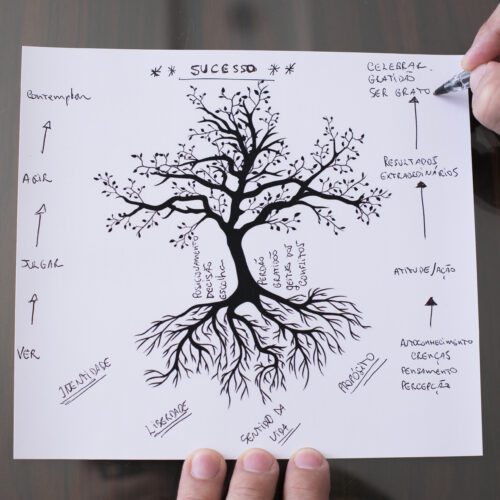 ** SUCESSO **
Contemplar
AGIR
JULGAR
VER
POSICIONAMENTO
DECISÃO
ESCOLHA
PERDÃO
GRATIDÃO
GESTÃO DOS
CONFLITOS
CELEBRAR
GRATIDÃO
SER GRATO
RESULTADOS
EXTRAORDINÁRIOS
ATITUDE/AÇÃO
AUTOCONHECIMENTO
CRENÇAS
PENSAMENTO
PERCEPÇÃO
IDENTIDADE
LIBERDADE
SENTIDO DA
VIDA
PROPÓSITO